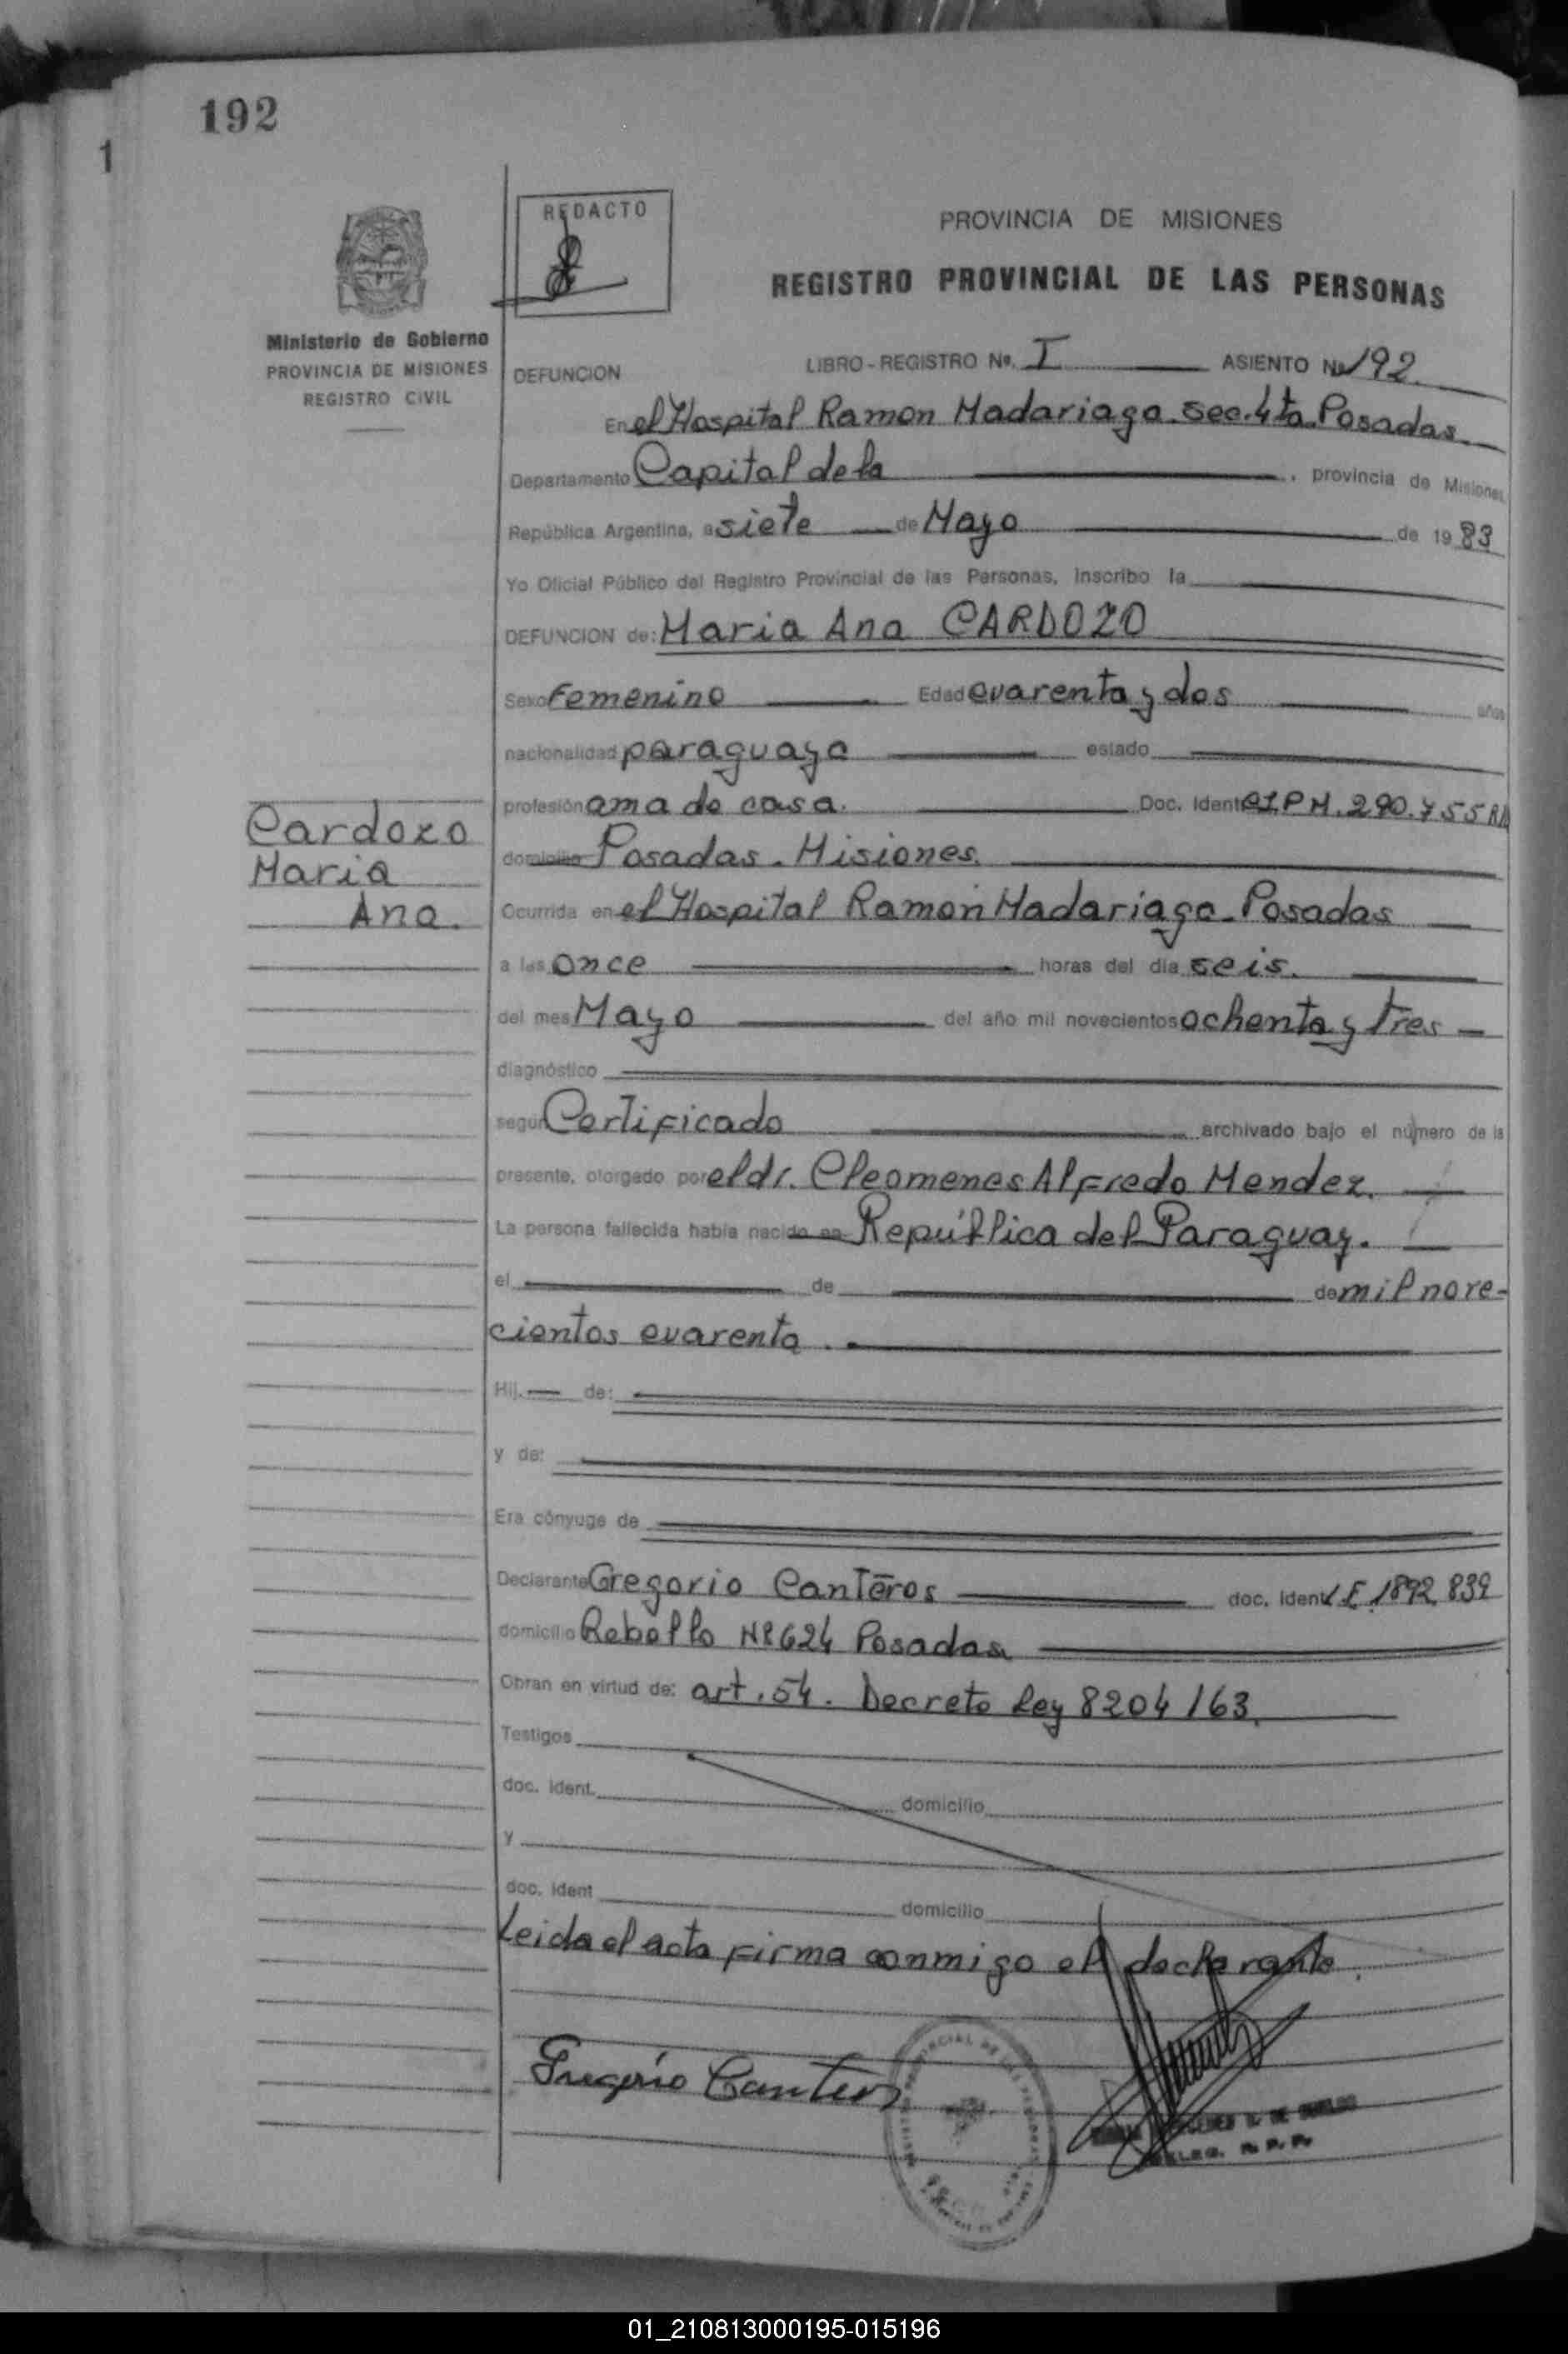 192
1
REDACTO
PROVINCIA DE MISIONES
REGISTRO PROVINCIAL DE LAS PERSONAS
Ministerio de Gobierno
PROVINCIA DE MISIONES
REGISTRO CIVIL
DEFUNCION LIBRO - REGISTRO Nº. I ASIENTO Nº 192.
En el Hospital Ramon Madariaga. sec. 4ta. Posadas.
Departamento Capital de la , provincia de Misiones,
República Argentina, a siete de Mayo de 1983
Yo Oficial Público del Registro Provincial de las Personas, inscribo la
DEFUNCION de: Maria Ana CARDOZO
Sexo Femenino Edad cuarenta y dos años
nacionalidad paraguaya estado
profesión ama de casa. Doc. Ident. CI.P.M. 290.755
Cardozo
Maria
Ana.
domicilio Posadas. Misiones.
Ocurrida en el Hospital Ramon Madariaga. Posadas
a las once horas del día seis.
del mes Mayo del año mil novecientos ochenta y tres
diagnóstico
según Certificado archivado bajo el número de la
presente, otorgado por el dr. Cleomenes Alfredo Mendez.
La persona fallecida había nacido en República del Paraguay.
el de de mil nove-
cientos cuarenta.
Hij. de:
y de:
Era cónyuge de
Declarante Gregorio Canteros doc. ident. L.E. 1892.839
domicilio Rebollo Nº 624 Posadas
Obran en virtud de: art. 54. Decreto Ley 8204/63.
Testigos
doc. ident. domicilio
y
doc. ident domicilio
Leida el acta firma conmigo el declarante.
Gregorio Canteros